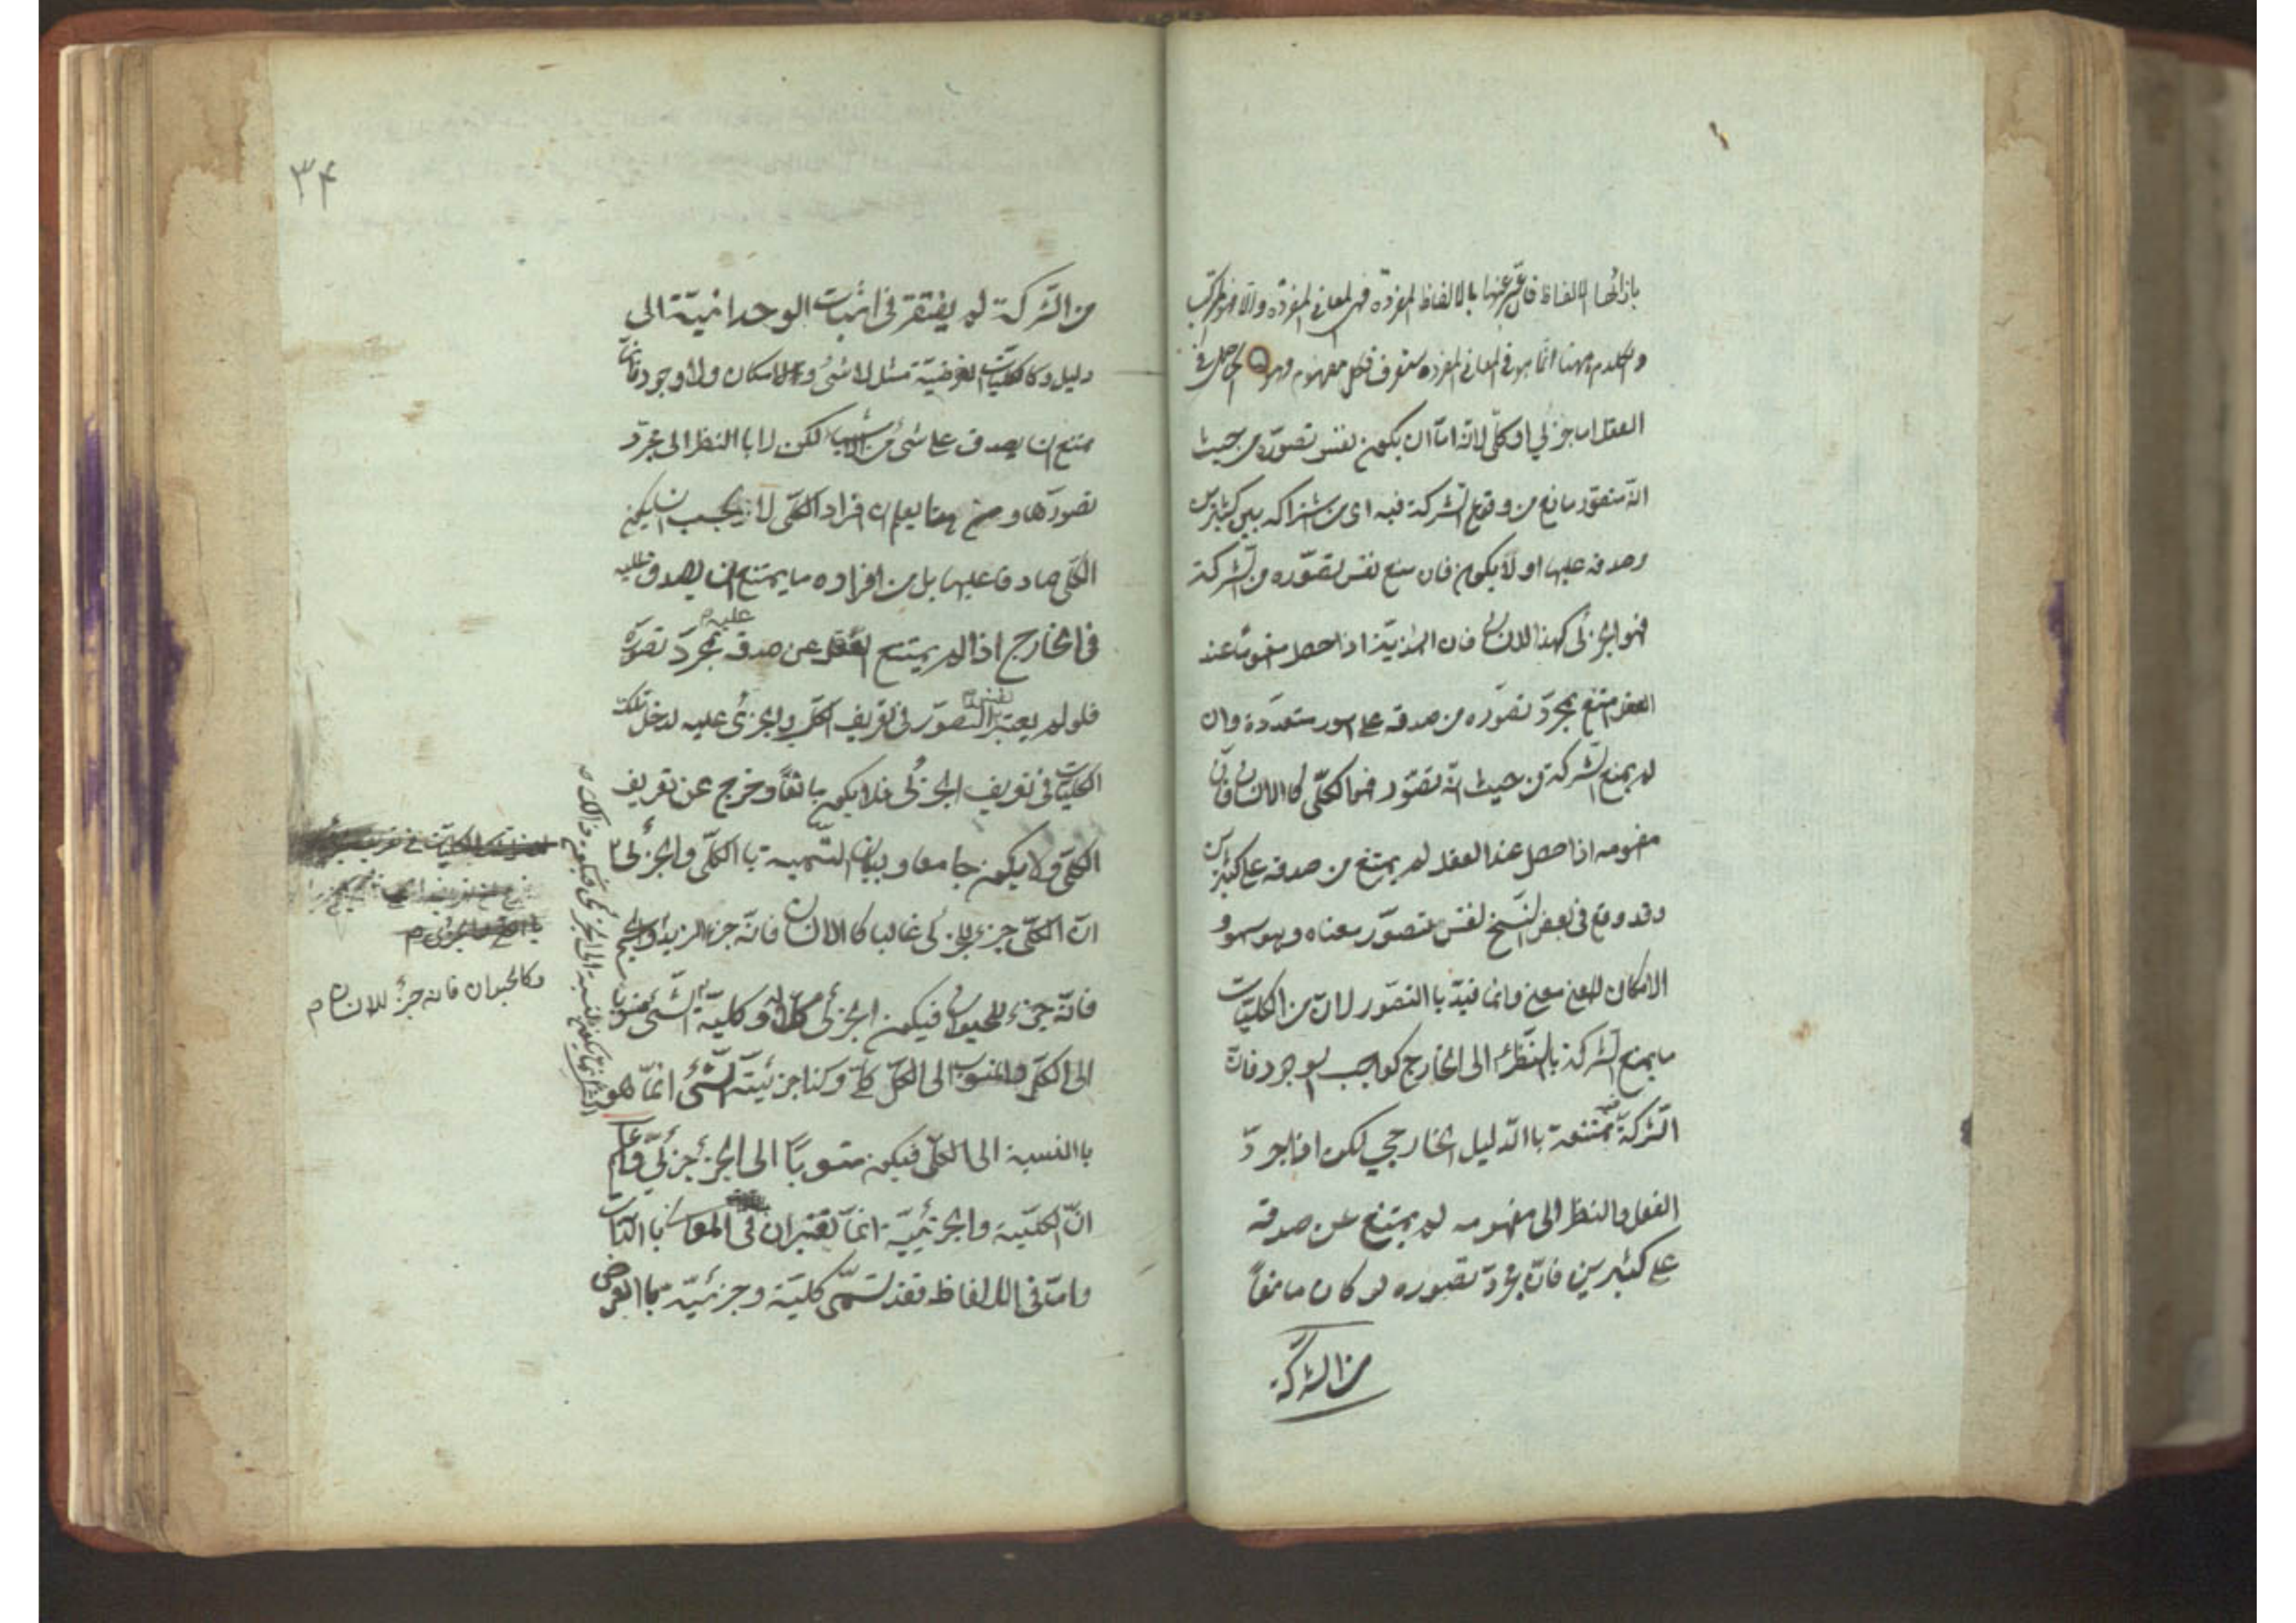 بازائها الالفاظ فان عبّر عنها بالالفاظ المفردة فهى المعانى المفردة والا فالمركّب
والكلام ههنا انّما هو فى المعانى المفردة ستعرف فكل مفهوم وهو الحاصل فى
العقل اما جزئي او كلّى لانّه امّا ان يكون نفس تصوّره من حيث
انّه متصوّر مانع من وقوع الشركة فيه اى من اشتراكه بين كثيرين
وصدقه عليها او لا يكون فان منع نفس تصوّره من الشركة
فهو الجزئى كهذا الانسان فان الهذيّة اذا حصل مفهومها عند
العقل امتنع بمجرّد تصوّره من صدقه على امور متعدّدة وان
لم يمنع الشركة من حيث انّه تصوّر فهو الكلّى كاالانسان فانّ
مفهومه اذا حصل عند العقل لم يمتنع من صدقه على كثيرين
وقد وقع فى بعض النسخ نفس تصوّر معناه وهو سهو و
الا لكان للمعنى معنى وانما قيّد باالتصوّر لان من الكليّات
ما يمنع الشركة بالنظر الى الخارج كواجب الوجود فانّ
الشركة فيه ممتنعة باالدّليل الخارجي لكن اذا جرّد
العقل والنظر الى مفهومه لم يمتنع عن صدقه
على كثيرين فانّ مجرّد تصوره لو كان مانعاً
من الشركة
٣٤
من الشّركة لم يفتقر فى اثبات الوحدانيّة الى
دليل وكالكليّات الفرضيّة مثل لا شئ ولا امكان ولا وجود فانّها
يمتنع ان يصدق على شئ من الاشياء لكن لا باالنظر الى مجرّد
تصورها ومن ههنا يعلم ان افراد الكلّى لا يجب ان يكون
الكلّى صادقا عليها بل من افراده ما يمتنع ان يصدق عليه
فى الخارج اذا لم يمتنع العقل عن صدقه عليه بمجرّد تصوّره
فلو لم يعتبر نفس التصوّر فى تعريف الكلّى والجزئى عليه لدخل تلك
الكليّات فى تعريف الجزئى فلا يكون مانعاً وخرج عن تعريف
الكلّى فلا يكون جامعا وبيان التّسمية باالكلّى والجزئى
انّ الكلّى جزء للجزئى غالبا كاالانسان فانّه جزء لزيد
وكالحيوان فانه جزء للانسان
فانّه جزء للحيوان فيكون الجزئى كلّا له و كليّة الشئ
فيكون ذلك
الشئ انما يكون بالنسبة الى الجزئى
الى الكلّ والمنسوب الى الكلّ كلّى وكذا جزئيّة الشّئ انّما هو
باالنسبة الى الكلّى فيكون منسوبًا الى الجزء جزئىّ واعلم
انّ الكليّة والجزئيّة انّما تعتبران فى المعانى باالذات
وامّا فى الالفاظ فقد تسمّى كليّة وجزئيّة باالعرض